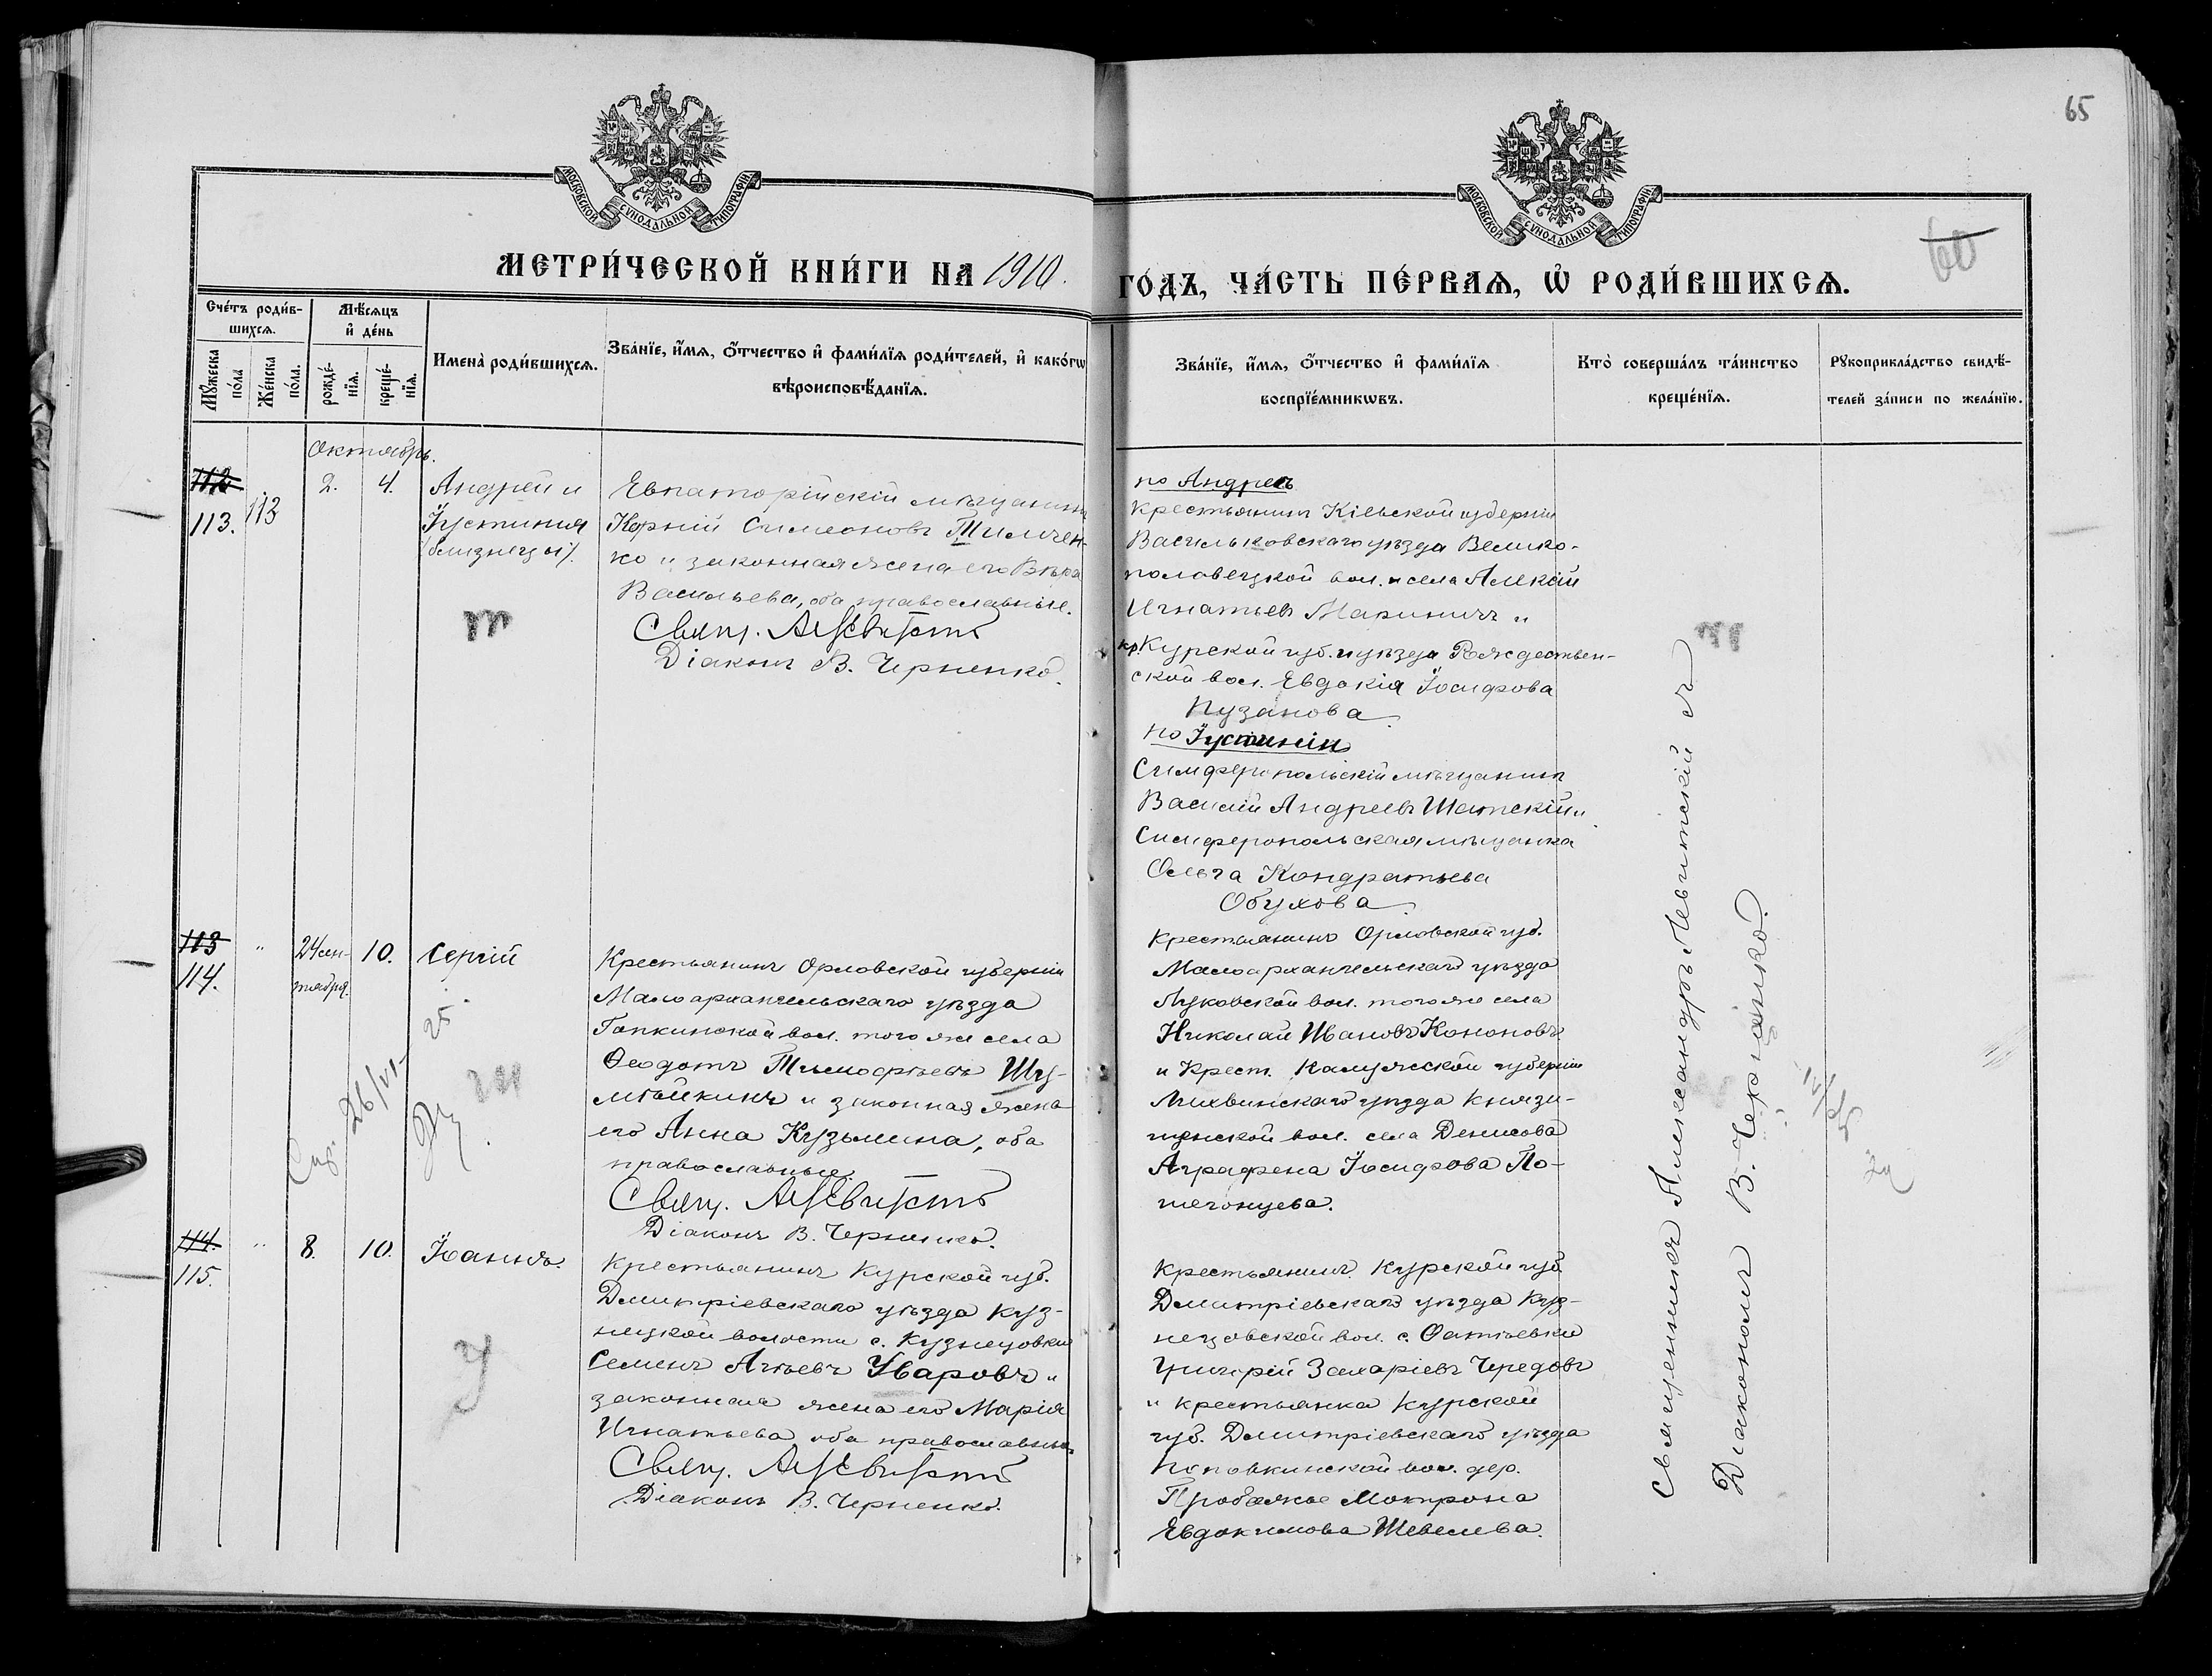 65
60
МОСКОВСКОЙ СѴНОДАЛЬНОЙ ТИПОГРАФІИ
МОСКОВСКОЙ СѴНОДАЛЬНОЙ ТИПОГРАФІИ
МЕТРИ́ЧЕСКОЙ КНИ́ГИ НА 1910.
ГО́ДЪ, ЧА́СТЬ ПЕ́РВАѦ, Ѡ҆ РОДИ́ВШИХСѦ.
Сче́тъ роди́в-
шихсѧ.
Мꙋ́жеска
по́ла
Же́нска
по́ла.
Мѣ́сѧцъ
и҆ де́нь
рожде́-
нїѧ.
креще́-
нїѧ.
Имена̀ роди́вшихсѧ.
Зва́нїе, и҆́мѧ, ѻ҆́тчество и҆ фами́лїѧ роди́телей, и҆ како́гѡ
вѣроисповѣ́данїѧ.
Зва́нїе, и҆́мѧ, ѻ҆́тчество и҆ фами́лїѧ
воспрїе́мникѡвъ.
Кто̀ соверша́лъ та́инство
креще́нїѧ.
Рꙋкоприкла́дство свидѣ́-
телей за́писи по жела́нїю.
Октябрь.
112
113. 113
2. 4.
Андрей и
Іустинія
(близнецы).
Евпаторійскій мѣщанинъ
Корній Симеоновъ Тимчен-
ко и законная жена его Вѣра
Васильева, оба православные.
Свящ. А. Левитскій
Діаконъ В. Черненко.
по Андреѣ
Крестьянинъ Кіевской губерніи
Васильковскаго уѣзда Велико-
половецкой вол. и села Алексій
Игнатьевъ Мариничъ и
кр. Курской губ. и уѣзда Рождествен-
ской вол. Евдокія Іосифова
Пузанова
по Іустиніи
Симферопольскій мѣщанинъ
Василій Андреевъ Шатскій и
Симферопольская мѣщанка
Ольга Кондратьева
Обухова.
113 "
114.
24 сен-
тября.
10.
Сергій
Крестьянинъ Орловской губерніи
Малоархангельскаго уѣзда
Гапкинской вол. того же села
Ѳеодотъ Тимофѣевъ Шу-
мѣйкинъ и законная жена
его Анна Кузьмина, оба
православные.
Свящ. А. Левитскій
Діаконъ В. Черненко.
Крестьянинъ Орловской губ.
Малоархангельскаго уѣзда
Луковской вол. того же села
Николай Ивановъ Кононовъ
и Крест. Калужской губерніи
Лихвинскаго уѣзда Князи-
щенской вол. села Денисова
Аграфена Іосифова По-
шехонцева.
25.
26/VI
114. "
115.
8. 10.
Іоаннъ.
Крестьянинъ Курской губ.
Дмитріевскаго уѣзда Куз-
нецкой волости с. Кузнецовки
Семенъ Агѣевъ Уваровъ и
законная жена его Марія
Игнатьева оба православные
Свящ. А. Левитскій
Діаконъ В. Черненко.
Крестьянинъ Курской губ.
Дмитріевскаго уѣзда Куз-
нецовской вол. с. Фатѣевки
Григорій Захаріевъ Чередовъ
и крестьянка Курской
губ. Дмитріевскаго уѣзда
Поповкинской вол. дер.
Пробожье Матрона
Евдокимова Шевелева.
Священникъ Александръ Левитскій съ
Діакономъ В. Черненко.